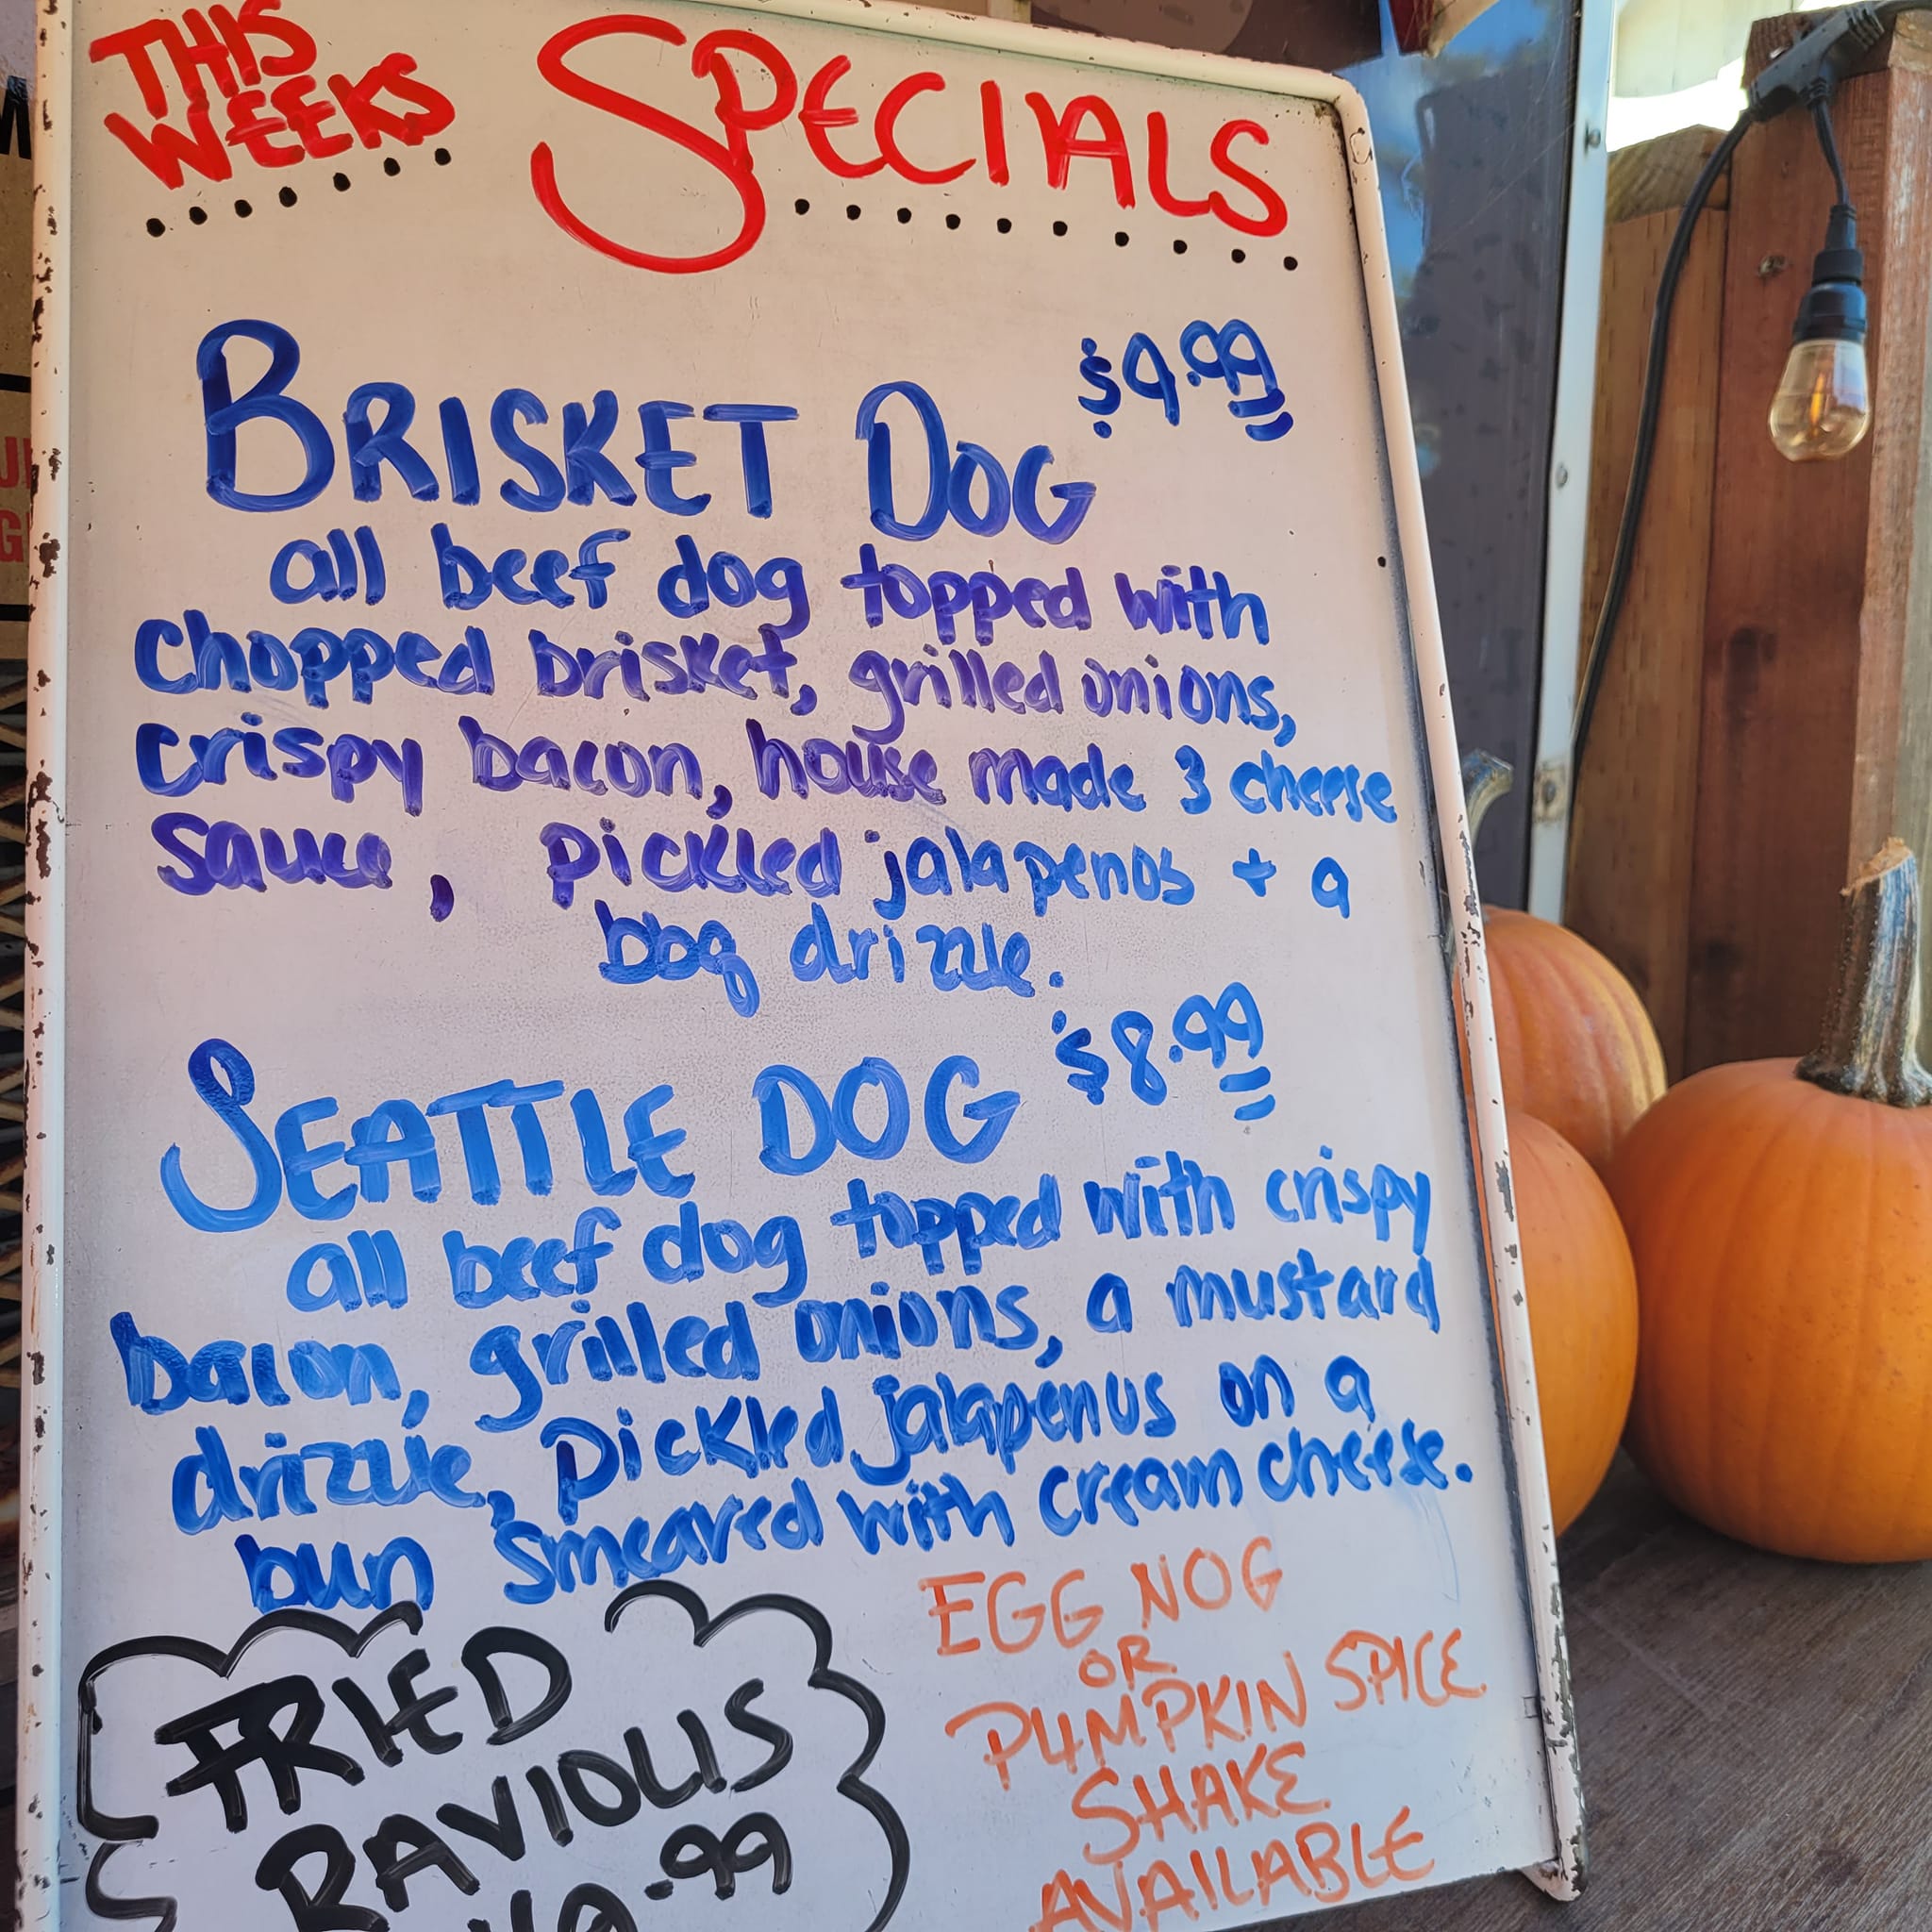 THIS
WEEKS
SPECIALS
BRISKET DOG $9.99
all beef dog topped with
chopped brisket, grilled onions,
crispy bacon, house made 3 cheese
sauce, pickled jalapenos + a
bbq drizzle.
SEATTLE DOG $8.99
all beef dog topped with crispy
bacon, grilled onions, a mustard
drizzle, pickled jalapenos on a
bun smeared with cream cheese.
FRIED
RAVIOLIS
EGG NOG
OR
PUMPKIN SPICE
SHAKE
AVAILABLE